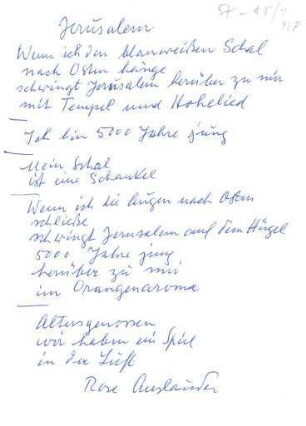 Jerusalem
Wenn ich den blauweißen Schal
nach Osten hänge
schwingt Jerusalem herüber zu mir
mit Tempel und Hohelied
Ich bin 5000 Jahre jung
Mein Schal
ist eine Schaukel
Wenn ich die Augen nach Osten
schließe
schwingt Jerusalem auf dem Hügel
5000 Jahre jung
herüber zu mir
im Orangenaroma
Altersgenossen
wir haben ein Spiel
in der Luft
Rose Ausländer